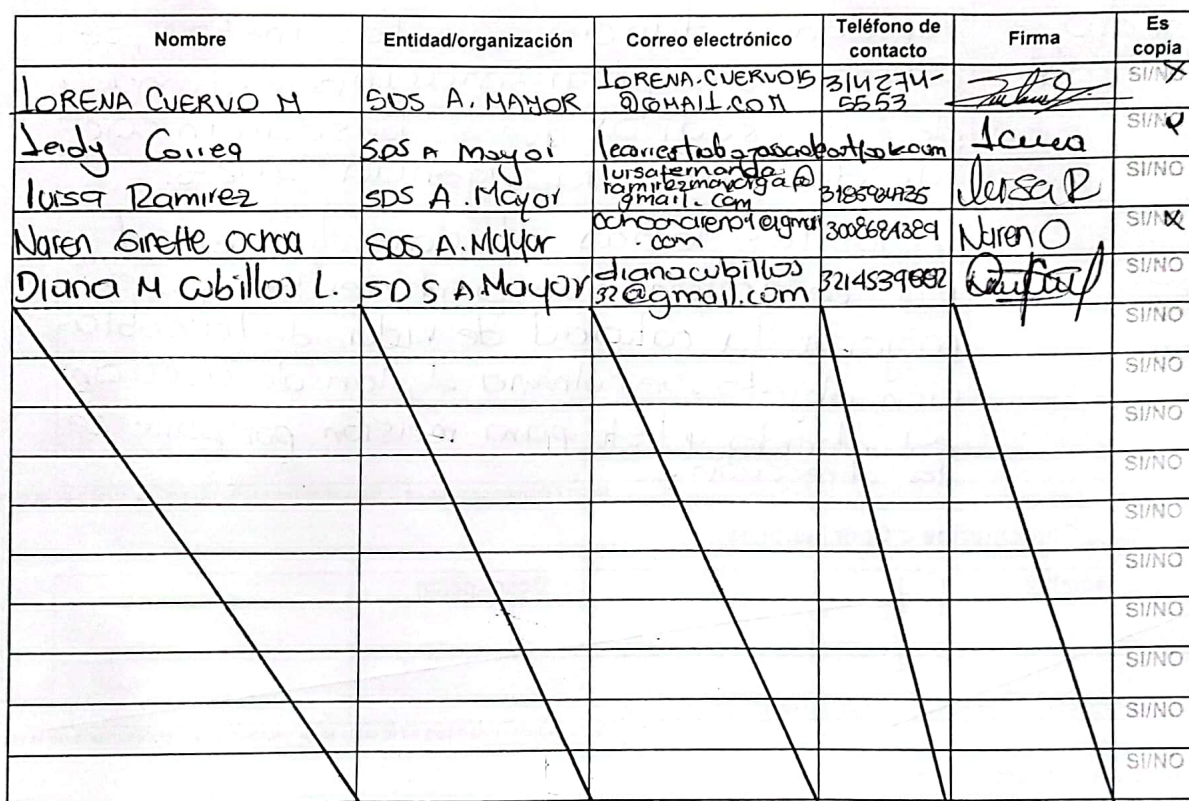 Nombre Entidad/organización Correo electrónico Teléfono de contacto Firma Es copia
LORENA CUERVO M SDS A. MAYOR LORENA.CUERVO15 @GMAIL.COM 314274-5553 SI/NO
Leidy Correa SDS A Mayor SI/NO
luisa Ramirez SDS A. Mayor luisafernanda ramirezmayorga@ gmail.com luisa R SI/NO
Naren Ginette Ochoa SDS A. Mayor .com 3008684389 Naren O SI/NO
Diana M Cubillos L. SDS A. Mayor dianacubillos 32@gmail.com SI/NO
SI/NO
SI/NO
SI/NO
SI/NO
SI/NO
SI/NO
SI/NO
SI/NO
SI/NO
SI/NO